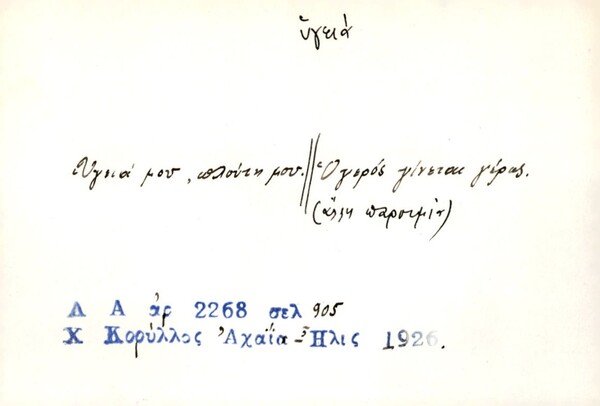 ὑγειά
Ὑγειά μου, πλούτη μου. || Ὁ γερός γίνεται γέρος.
(ἄλλη παροιμία)
Λ Α ἀρ 2268 σελ 905
Χ Κορύλλος Ἀχαΐα-Ἦλις 1926.